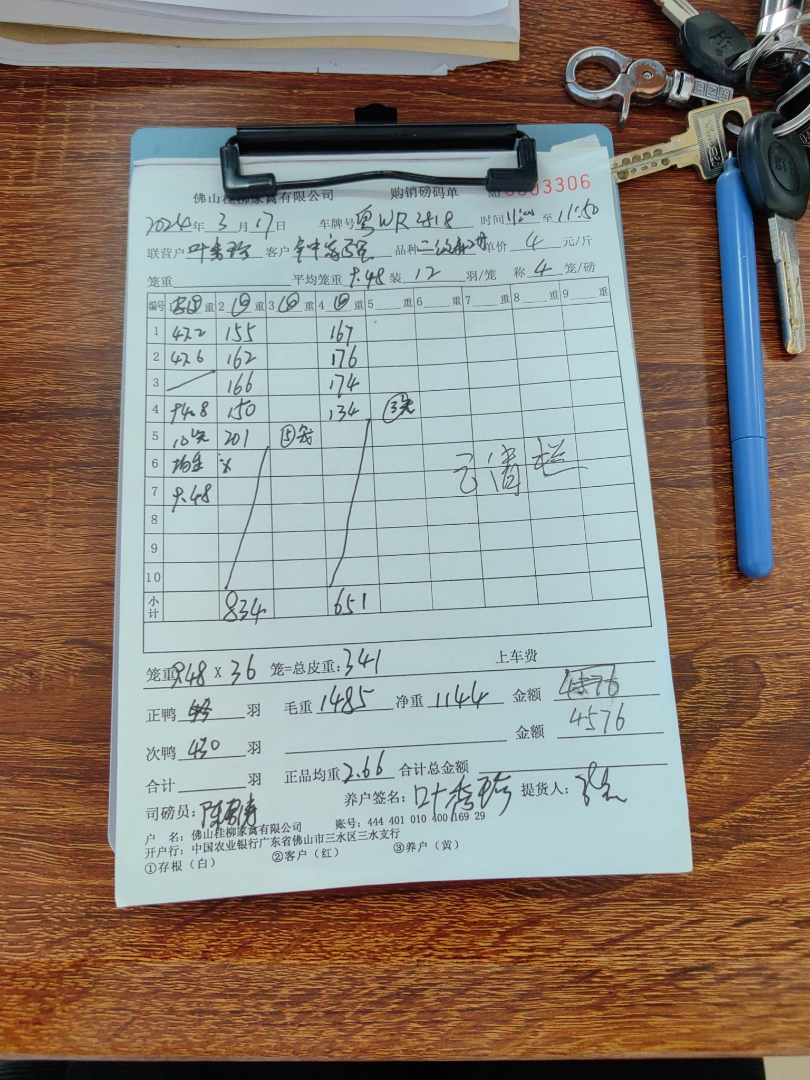 佛山桂柳家禽有限公司 购销磅码单 № 0003306
2024年 3 月 17 日 车牌号 粤WR2818 时间 11:00 至 11:50
联营户 叶秀珍 客户 品种 单价 4 元/斤
笼重 平均笼重 9.48 装 12 羽/笼 称 4 笼/磅
编号 1 重 2 重 3 重 4 重 5 重 6 重 7 重 8 重 9 重
1 47.2 155 167
2 47.6 162 176
3 166 174
4 94.8 150 134 ③笼
5 10笼 201 ⑤笼
6 均重
7 9.48 已清栏
8
9
10
小计 834 651
笼重 9.48 X 36 笼=总皮重: 341 上车费
正鸭 羽 毛重 1485 净重 1144 金额 4576
次鸭 430 羽 金额 4576
合计 羽 正品均重 2.66 合计总金额
司磅员: 养户签名: 叶秀珍 提货人:
户 名: 佛山桂柳家禽有限公司 账号: 444 401 010 400 169 29
开户行: 中国农业银行广东省佛山市三水区三水支行
①存根（白） ②客户（红） ③养户（黄）